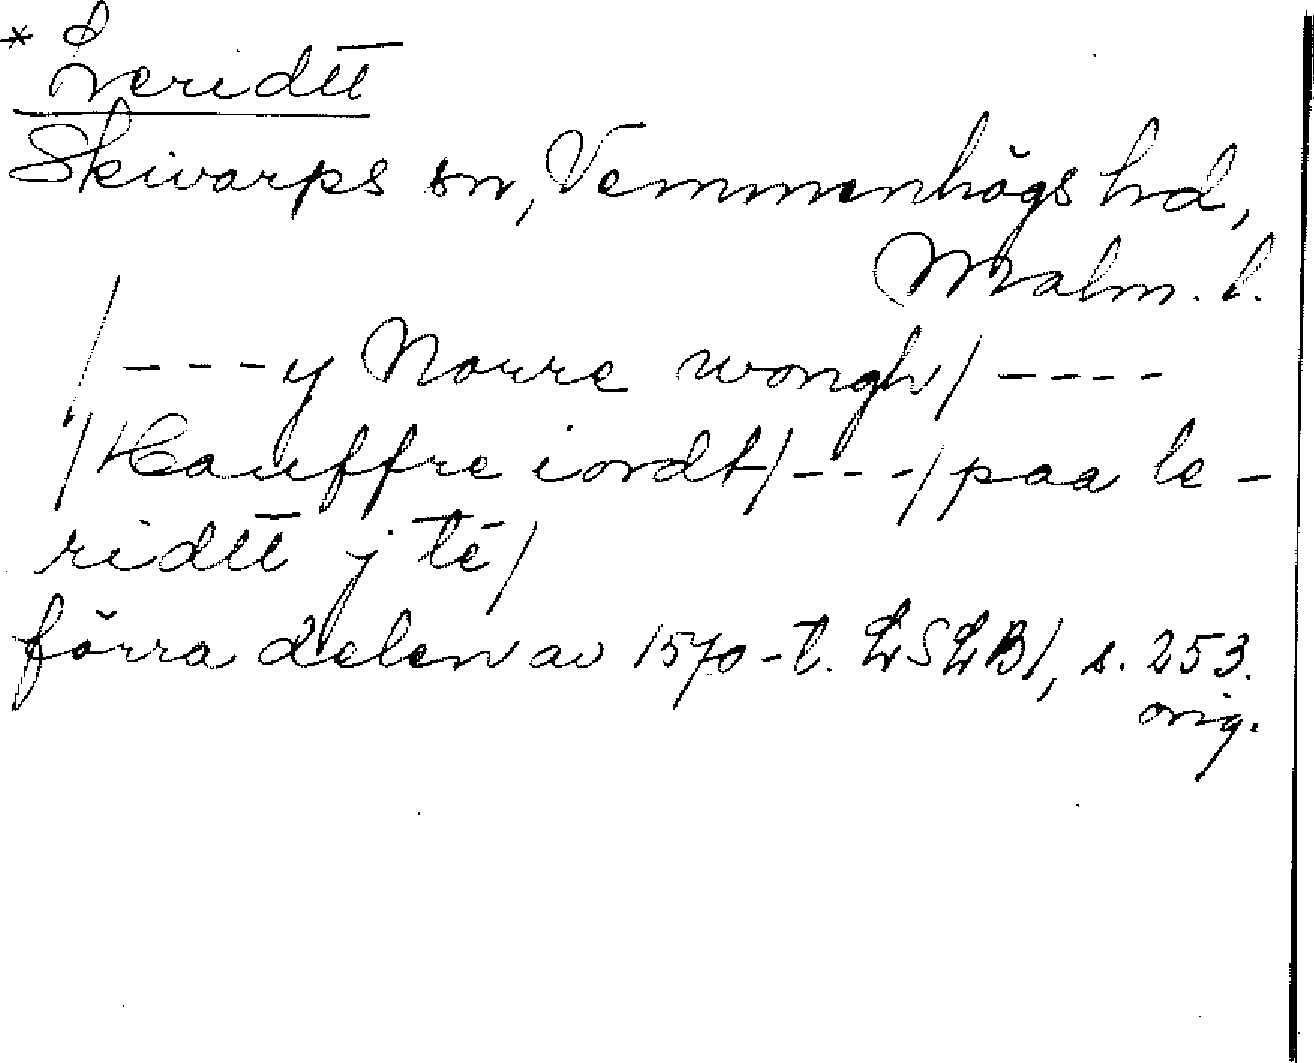 * Leridtt
Skivarps sn, Vemmenhögs hd,
Malm. l.
/----y Norre wongh/----
/Hauffre iordt/---/paa le-
ridtt j té/
förra delen av 1570-t. LSLB1, s. 253.
orig.